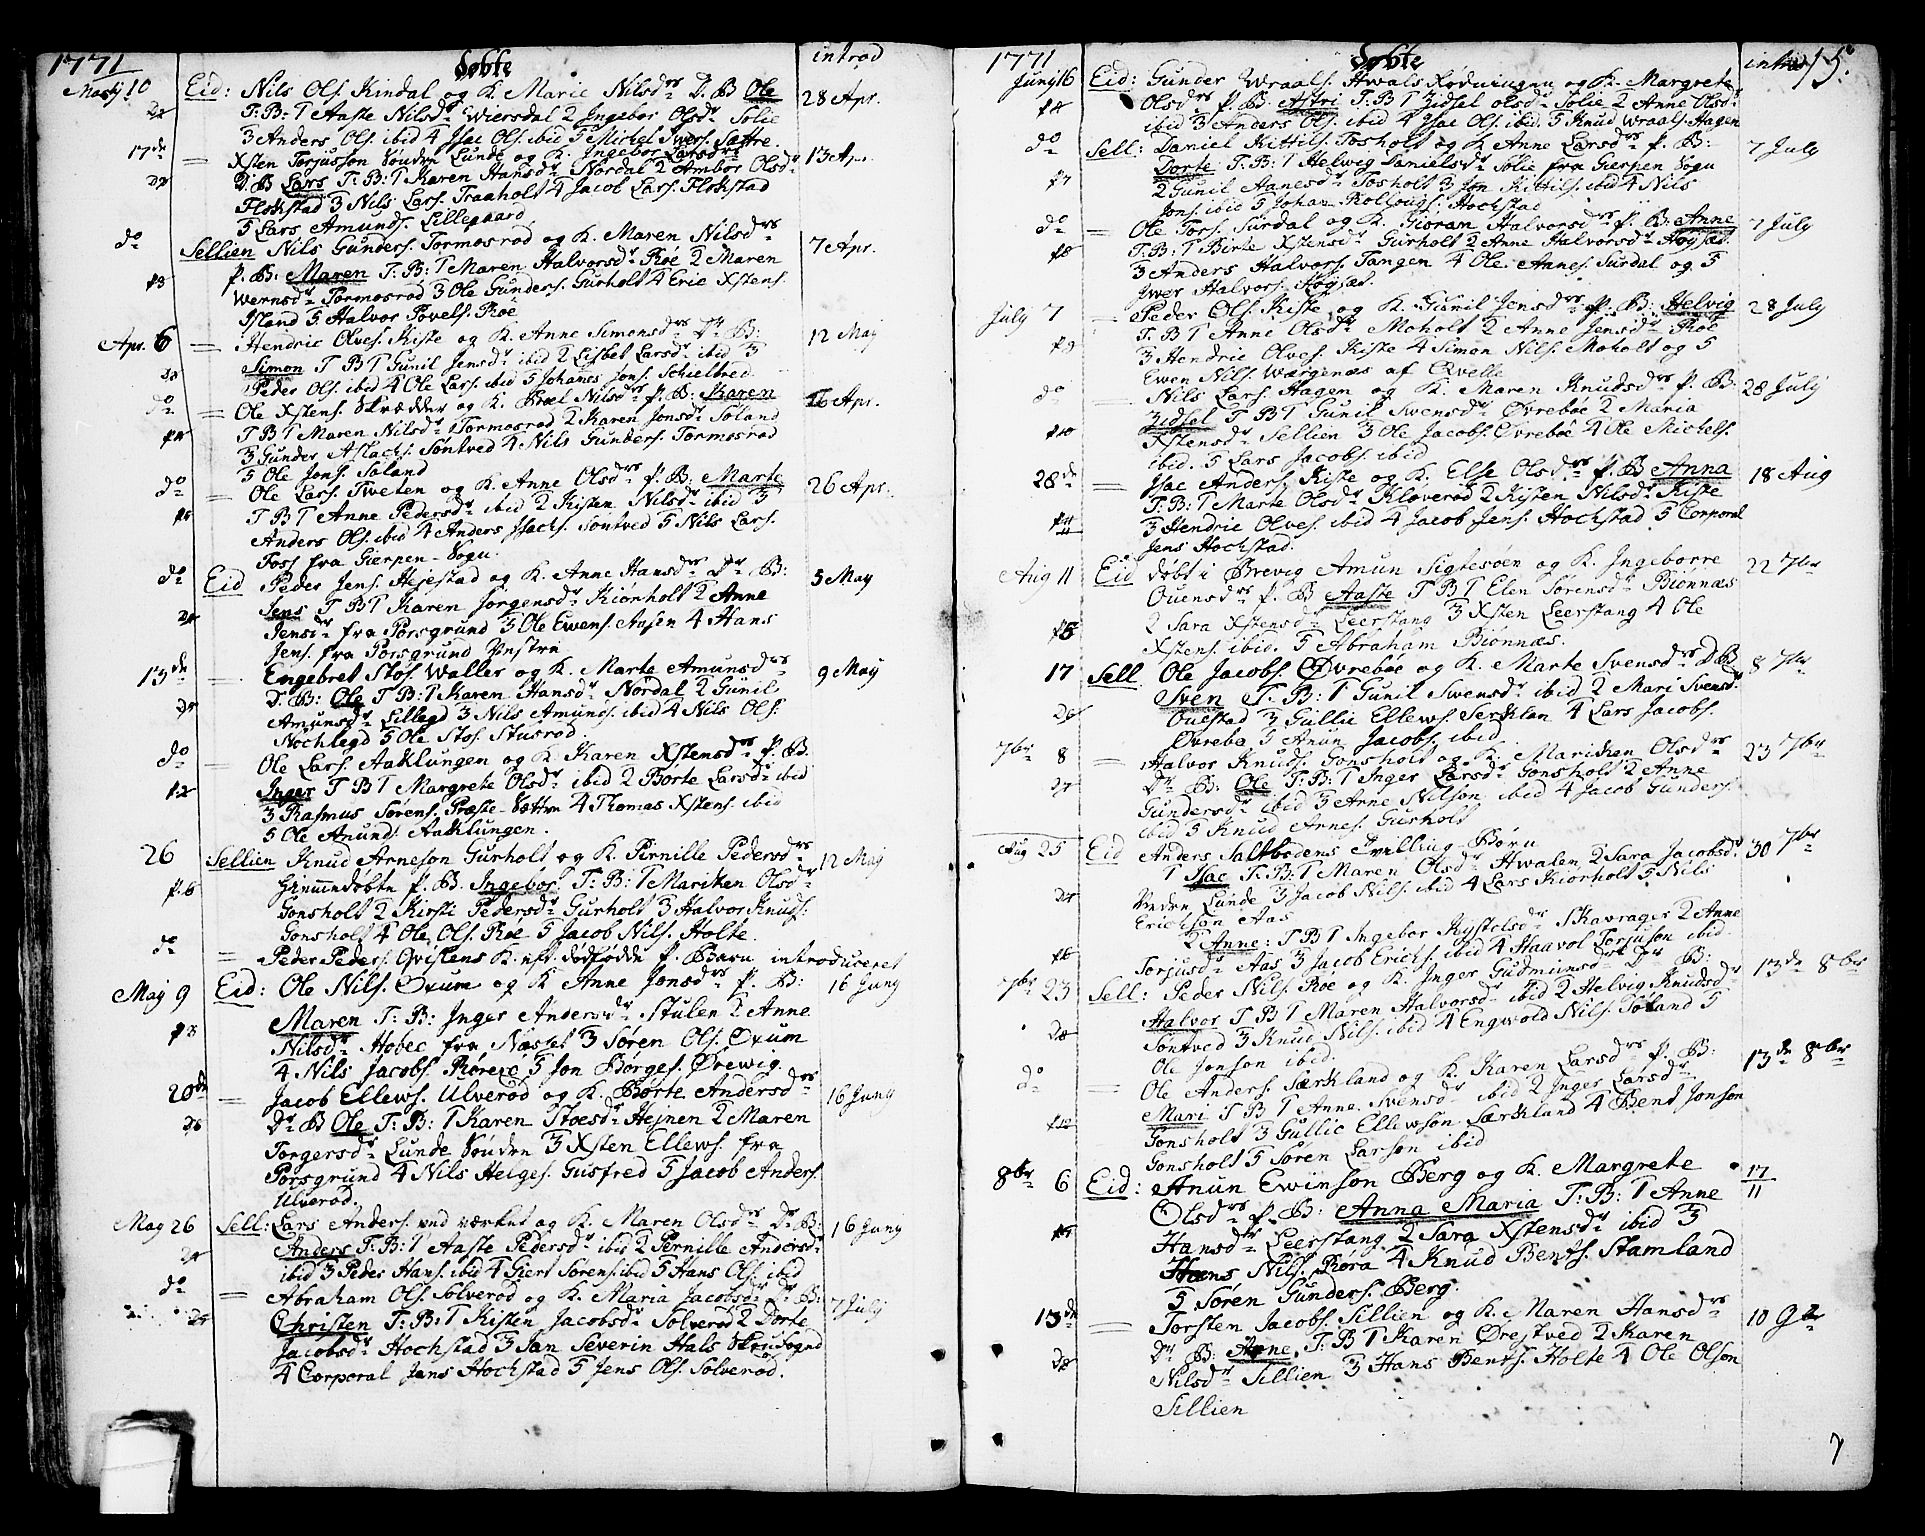 1771 Døbte introd
Martj 10 Eid: Nils Ols. Kindal og K. Marie Nilsdr D. B Ole 28 Apr.
T: B: 1 Aaste Nilsdr Wiersdal 2 Ingebor Olsdr Solie
3 Anders Ols. ibid 4 Isac Ols. ibid 5 Michel Iwers. Sættre
17de = Xsten Torjusson Lunde og K. Ingebor Larsdrs 13 Apr.
D: B Lars T: B: 1 Karen Hansdr Nordal 2 Ambor Olsdr
Flokstad 3 Nils Lars. Traaholt 4 Jacob Lars. Flokstad
5 Lars Amunds. Lillegaard
do Sellien Nils Gunders. Tormosrød og K. Maren Nilsdrs 7 Apr.
P. B: Maren T: B: 1 Maren Halvorsdr Røe 2 Maren
Wernsdr Tormosrød 3 Ole Gunders. Gurholt 4 Eric Xstens.
Island 5 Halvor Povels. Røe
Apr. 6 = Hendric Olves. Kiste og K. Anne Simonsdrs Dr B: 12 Maj
Simon T B 1 Gunil Jensdr ibid 2 Lisbet Larsdr ibid 3
Peder Ols. ibid 4 Ole Lars. ibid 5 Johanes Jons. Schielbred
do = Ole Xstens. Skrædder og K. Nilsdrs P. B: Karen 16 Apr.
T B 1 Maren Nilsdr Tormosrød 2 Karen Jonsdr Søland
3 Gunder Aslachs. Søntved 4 Nils Gunders. Tormosrød
5 Ole Jons. Søland
do = Ole Lars. Tweten og K. Anne Olsdrs P. B: Marte 26 Apr.
T B 1 Anne Pedersdr ibid 2 Kisten Nilsdr ibid 3
Anders Ols. ibid 4 Anders Isachs. Søntved 5 Nils Lars.
Foss fra Gierpen-Sogn.
do Eid Peder Jens. Hejestad og K. Anne Hansdrs Dr B: 5 Maj
Jens T B 1 Karen Jørgensdr Kiønholt 2 Anne
Jensdr fra Porsgrund 3 Ole Ewens. Ausen 4 Hans
Jens. fra Porsgrund
13de = Engebret Stos. Waller og K. Marte Amunsdrs 9 Maj
D. B: Ole T B: 1 Karen Hansdr Nordal 2 Gunil
Amunsdr Lillegd 3 Nils Amunds. ibid 4 Nils Ols.
Nochlegd 5 Ole Stos. Stusrød
do = Ole Lars. Aaklungen og K. Karen Xstensdrs P. B.
12 Inger T B 1 Margrete Olsdr ibid 2 Borte Larsdr ibid
3 Rasmus Sørens. Præste Sættre 4 Thomas Xstens. ibid
5 Ole Anund. Aaklungen.
26 Sellien Knud Arneson Gurholt og K. Pernille Pedersdrs 12 Maj
P. 6 hiemmedøbte P. B. Ingebor T: B: 1 Mariken Olsdr
Gonsholt 2 Kirsti Pedersdr Gurholt 3 Halvor Knuds.
Gonsholt 4 Ole Ols. Røe 5 Jacob Nils. Holte
do = Peder Peders. Qvistens K. eft. dødfødde P. Barn introduceret
Maj 9 Eid: Ole Nils. Øxum og K Anne Jonsdrs P. B: 16 Junj
Maren T: B: Inger Andersdr Stulen 2 Anne
Nilsdr Hobec fra Næsset 3 Søren Ols. Øxum
4 Nils Jacobs. Røreie 5 Jon Børges. Ørewig
20de = Jacob Ellews. Ulverød og K. Børte Andersdrs 16 Junj
Dr B Ole T: B: 1 Karen Stoesdr Hejnen 2 Maren
Torgersdr Lunde 3 Xsten Ellews. fra
Porsgrund 4 Nils Helges. Gusfred 5 Jacob Anders.
Ulverød.
Maj 26 Sell: Lars Anders. ved værket og K. Maren Olsdrs Dr B: 16 Junj
Anders T: B: 1 Aaste Pedersdr ibid 2 Pernille Andersdr
ibid 3 Peder Hans. ibid 4 Giert Sørens. ibid 5 Hans Ols. ibid
do = Abraham Ols. Solverød og K. Maria Jacobsdrs Dr B: 7 July
Christen T: B: 1 Kisten Jacobsdr Solverød 2 Dorte
Jacobsdr Hochstad 3 Jan Severin Hals
4 Corporal Jens Hochstad 5 Jens Ols. Solverød.
1771 Døbte introd 15.
Junj 16 Eid: Gunder Wraals. Hwals og K. Margrete
Olsdrs P. B: Astri T: B 1 Zidsel olsdr Solie 2 Anne Olsdr
ibid 3 Anders Ols. ibid 4 Isac Ols. ibid. 5 Knud Wraals. Hagen
do Sell: Daniel Kittils. Fosholt og K Anne Larsdrs P. B: 7 July
Dorte T: B: 1 Helwig Danielsdr Solie fra Gierpen Sogn
2 Gunil Aanesdr Fosholt 3 Jon Kittils. ibid 4 Nils
Jons. ibid 5 Johan Hochstad
do = Ole Tors. Surdal og K. Kioran Halvorsdrs P. B. Anne 7 July
T: B: 1 Birte Xstensdr Gurholt 2 Anne Halvorsdr Høgsæt
3 Anders Halvors. Tangen 4 Ole Annes. Surdal og 5
Iwer Halvors. Høgsæt.
July 7 = Peder Ols. Kiste og K. Gunil Jensdrs P. B: Helvig 28 July
T: B 1 Anne Olsdr Moholt 2 Anne Jensdr Røe
3 Hendric Olves. Kiste 4 Simon Nils. Moholt og 5
Ewen Nils. Wærgenæs af Qvelle
do = Nils Lars. Hagen og K. Maren Knudsdrs P. B: 28 July
Zidsel T B 1 Gunil Swensdr Øvrebøe 2 Maria
Xstensdr Sellien 3 Ole Jacobs. Øvrebøe 4 Ole Michels.
ibid. 5 Lars Jacobs. ibid
28de = Isac Anders. Kiste og K. Else Olsdrs P. B Anna 18 Aug
T: B: 1 Marte Olsdr Kløverød 2 Kisten Nilsdr Kiste
3 Hendric Olves. ibid 4 Jacob Jens. Hochstad 5 Corporal
Jens Hochstad.
Aug 11 Eid døbt i Brevig Amun Sigtesøen og K. Ingeborre 22 7br
Ouensdrs P. B Aaste T B 1 Elen Sørensdr Biønnæs
2 Sara Xstensdr Leerstang 3 Xsten Leerstang 4 Ole
Xstens. ibid. 5 Abraham Biønnæs.
17 Sell Ole Jacobs. Øvrebøe og K. Marte Svensdrs D. B 8 7br
Sven T: B: 1 Gunil Swensdr ibid 2 Mari Svensdr
Ouestad 3 Gullic Ellews. Serklan 4 Lars Jacobs.
Øvrebø 5 Anun Jacobs. ibid
7br 8 = Halvor Knuds. Gonsholt og K. Mariken Olsdrs 23 7br
Dr B: Ole T: B: 1 Inger Larsdr Gonsholt 2 Anne
Gundersdr ibid 3 Arne Nilson ibid 4 Jacob Gunders.
ibid 5 Knud Arnes. Gurholt
Aug 25 Eid Anders Saltbodens Tvilling-Børn 30 7br
1 Isac T: B: 1 Maren Olsdr Hwalen 2 Sara Jacobsdr
Lunde 3 Jacob Nils. ibid 4 Lars Kiorholt 5 Nils
Erichson Aas
2 Anne: T B 1 Ingebor Kystelsdr Skavrager 2 Anne
Torjusdr Aas 3 Jacob Erichs. ibid 4 Haavol Torjuson ibid
7br 23 Sell: Peder Nils. Røe og K. Inger Gudmunsdrs Dr B: 13de 8br
Halvor T B 1 Maren Halvorsdr ibid 2 Helvig Knudsdr
Søntved 3 Knud Nils. ibid 4 Engwold Nils. Søland 5
Ole Jonson ibid.
do = Ole Anders. Særkland og K. Karen Larsdrs P. B: 13de 8br
Mari T B 1 Anne Swensdr ibid 2 Inger Larsdr
Gonsholt 3 Gullic Ellewson Særkland 4 Bent Jonson
Gonsholt 5 Søren Larson ibid
8br 6 Eid: Anun Ewinson Berg og K. Margrete 17/11
Olsdrs P. B: Anna Maria T: B: 1 Anne
Hansdr Leerstang 2 Sara Xstensdr ibid 3
Nils. Røra 4 Knud Bents. Stamland
5 Søren Gunders. Berg.
13de = Torsten Jacobs. Sillien og K. Maren Hansdrs 10 9br
Dr B: Arne T: B 1 Karen Ørestved 2 Karen
Nilsdr Sillien 3 Hans Bents. Holte 4 Ole Olson
Sillien